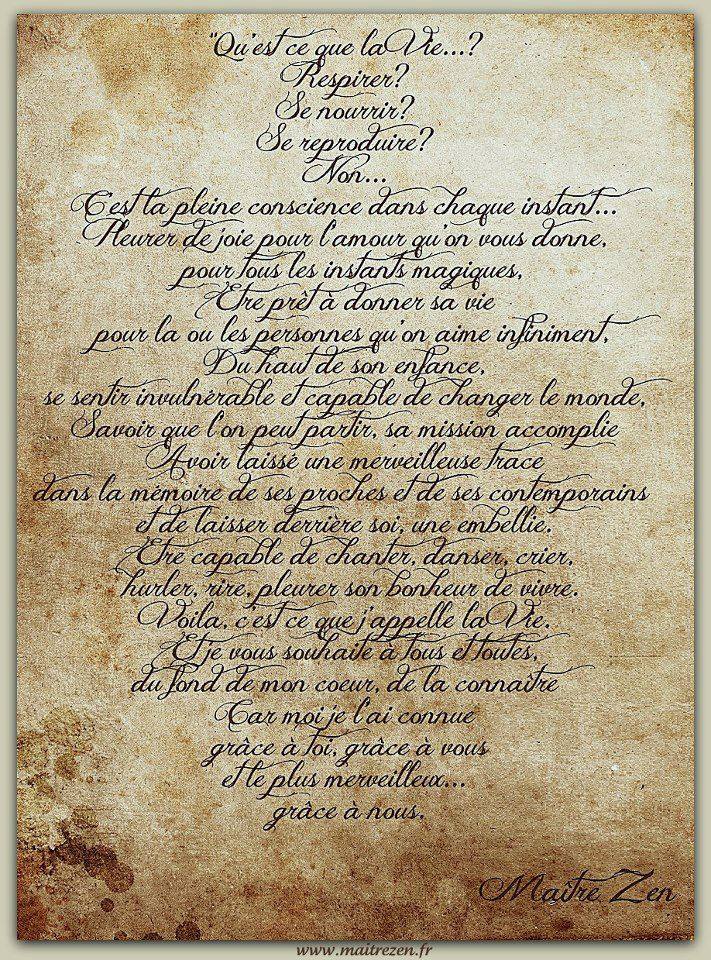 "Qu'est ce que la Vie...?
Respirer?
Se nourrir?
Se reproduire?
Non...
C'est la pleine conscience dans chaque instant...
Pleurer de joie pour l'amour qu'on vous donne,
pour tous les instants magiques,
Etre prêt à donner sa vie
pour la ou les personnes qu'on aime infiniment,
Du haut de son enfance,
se sentir invulnérable et capable de changer le monde,
Savoir que l'on peut partir, sa mission accomplie
Avoir laissé une merveilleuse trace
dans la mémoire de ses proches et de ses contemporains
et de laisser derrière soi, une embellie.
Etre capable de chanter, danser, crier,
hurler, rire, pleurer son bonheur de vivre.
Voila, c'est ce que j'appelle la Vie.
Et je vous souhaite à tous et toutes,
du fond de mon coeur, de la connaître
Car moi je l'ai connue
grâce à toi, grâce à vous
et le plus merveilleux...
grâce à nous.
Maître Zen
www.maitrezen.fr